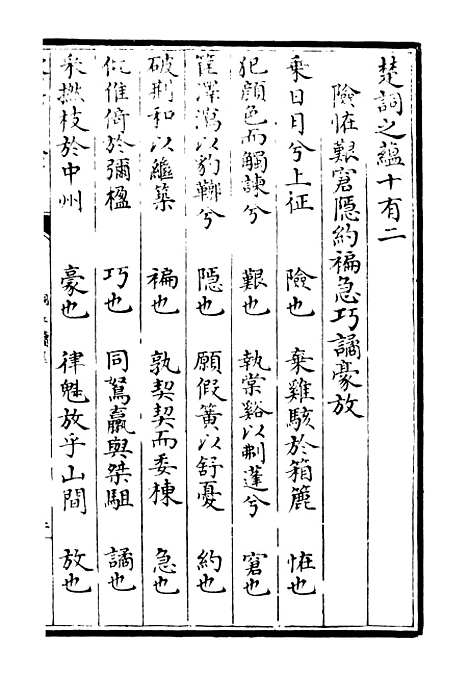 楚詞之蘊十有二
險怪艱窘隱約褊急巧譎豪放
乗日月兮上征 險也 棄雞駭於箱簏 怪也
犯顔色而觸諫兮 艱也 執棠谿以刜蓬兮 窘也
筐澤瀉以豹鞹兮 隱也 願假簧以舒憂 約也
破荆和以繼築 褊也 孰契契而委棟 急也
仳倠倚於彌楹 巧也 同駑驘與桀駔 譎也
采撚枝於中州 豪也 律魁放乎山間 放也